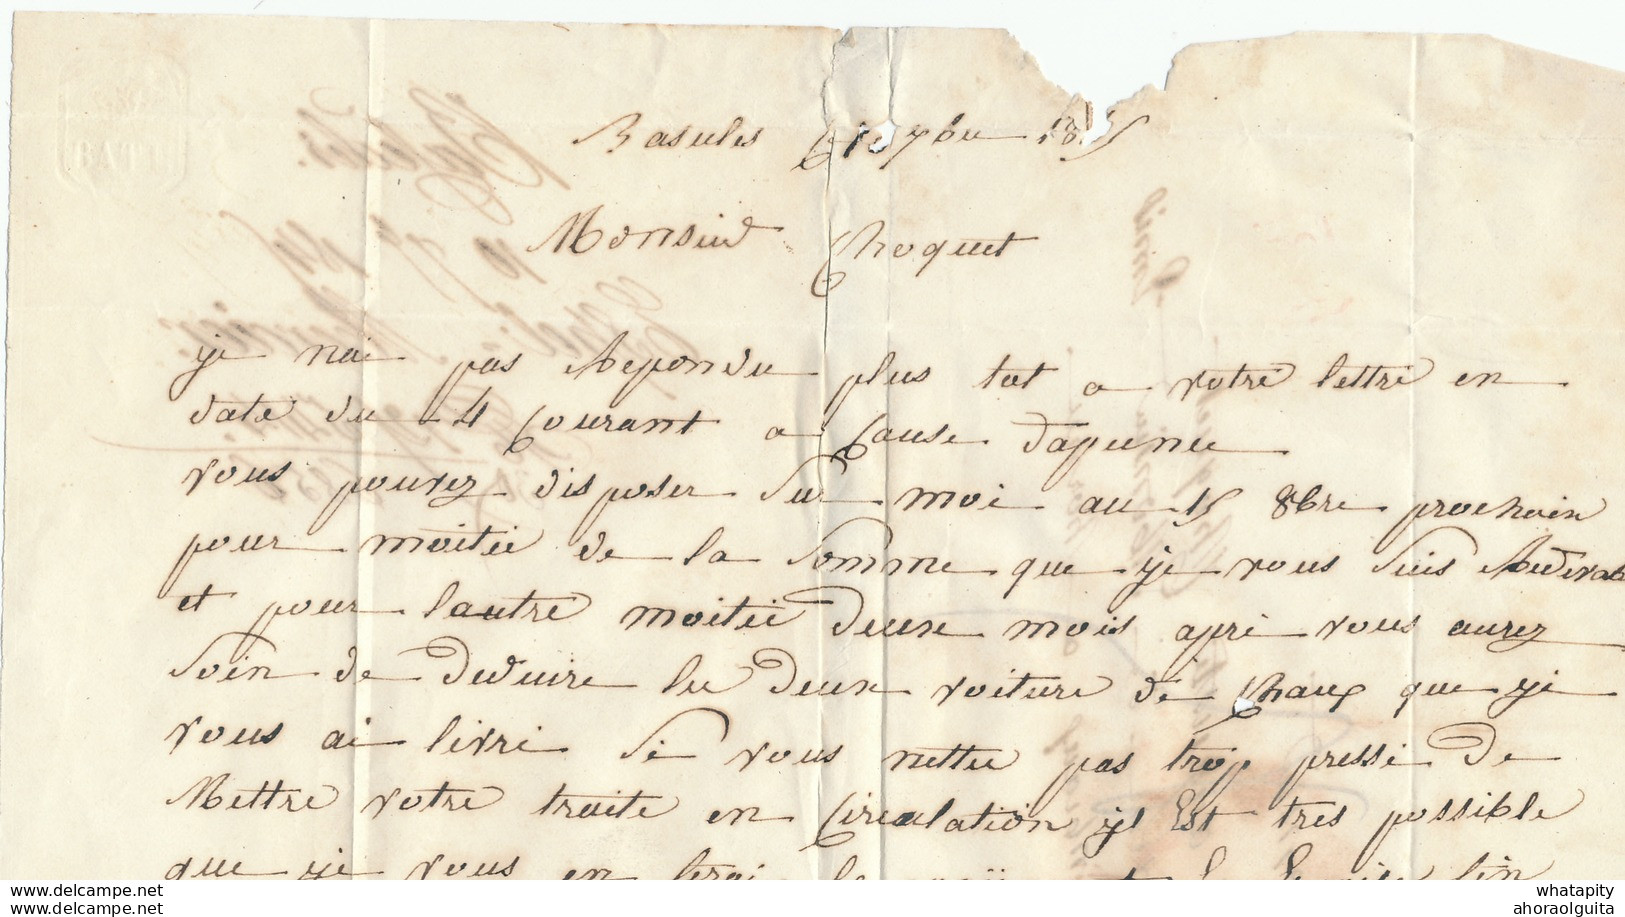 Basecles le 10 7bre 1855
Monsieur Choquet
je nai pas Repondu plus tot a votre lettre en
date du 4 Courant a Cause
vous pouvez disposer Sur moi au 15 8bre prochain
pour moitié de la Somme que je vous Suis Redevable
et pour lautre moitié deux mois apré vous aurez
Soin de deduire les deux voiture de Chaux que je
vous ai livré Si vous nettee pas trop pressé de
Mettre votre traite en Circulation yl Est tres possible
que je vous en
BAT
whatapity
ahoraolguita
www.delcampe.net